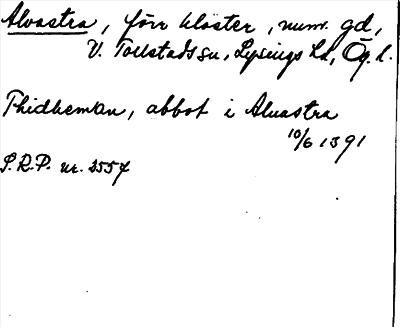 Alvastra, förr kloster, numr. gd,
V. Tollstads su, Lysings hd, Ög. l.
Thidheman, abbot i Alvastra
10/6 1391
S.R.P. nr. 2557